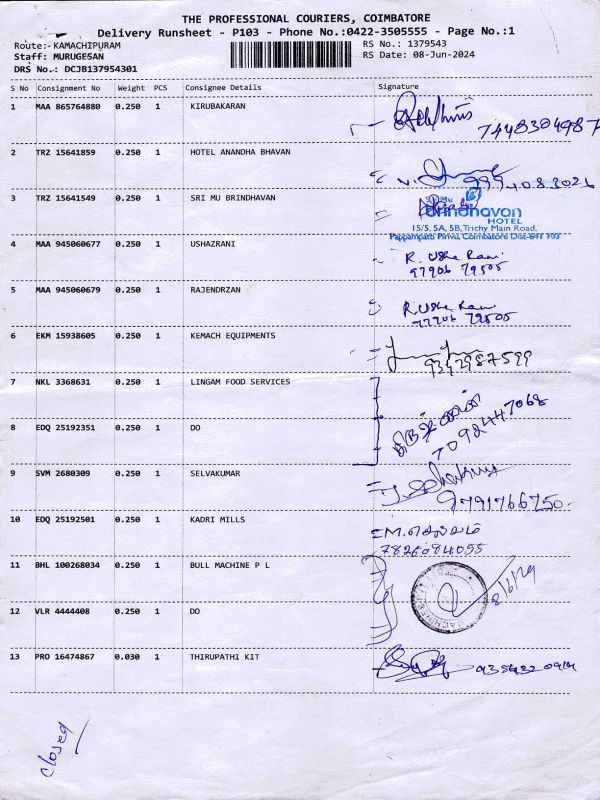 THE PROFESSIONAL COURIERS, COIMBATORE
Delivery Runsheet - P103 - Phone No.:0422-3505555 - Page No.:1
Route:- KAMACHIPURAM RS No.: 1379543
Staff: MURUGESAN RS Date: 08-Jun-2024
DRS No.: DCJB137954301
S No Consignment No Weight PCS Consignee Details Signature
1 MAA 865764880 0.250 1 KIRUBAKARAN
7448304987
2 TRZ 15641859 0.250 1 HOTEL ANANDHA BHAVAN
9994083026
3 TRZ 15641549 0.250 1 SRI MU BRINDHAVAN
Sri Mu
Brindhavan
HOTEL
15/5, 5A, 5B, Trichy Main Road,
Pappampatti Pirivu, Coimbatore Dist-641 103
4 MAA 945060677 0.250 1 USHAZRANI R. Usha Rani
97906 79505
5 MAA 945060679 0.250 1 RAJENDRZAN R. Usha Rani
97906 79505
6 EKM 15938605 0.250 1 KEMACH EQUIPMENTS
9342987599
7 NKL 3368631 0.250 1 LINGAM FOOD SERVICES
8 EDQ 25192351 0.250 1 DO
7092447068
9 SVM 2680309 0.250 1 SELVAKUMAR
9791766750
10 EDQ 25192501 0.250 1 KADRI MILLS M. செல்வம்
7826084055
11 BHL 100268034 0.250 1 BULL MACHINE P L
8/6/24
12 VLR 4444408 0.250 1 DO
13 PRO 16474867 0.030 1 THIRUPATHI KIT
closed